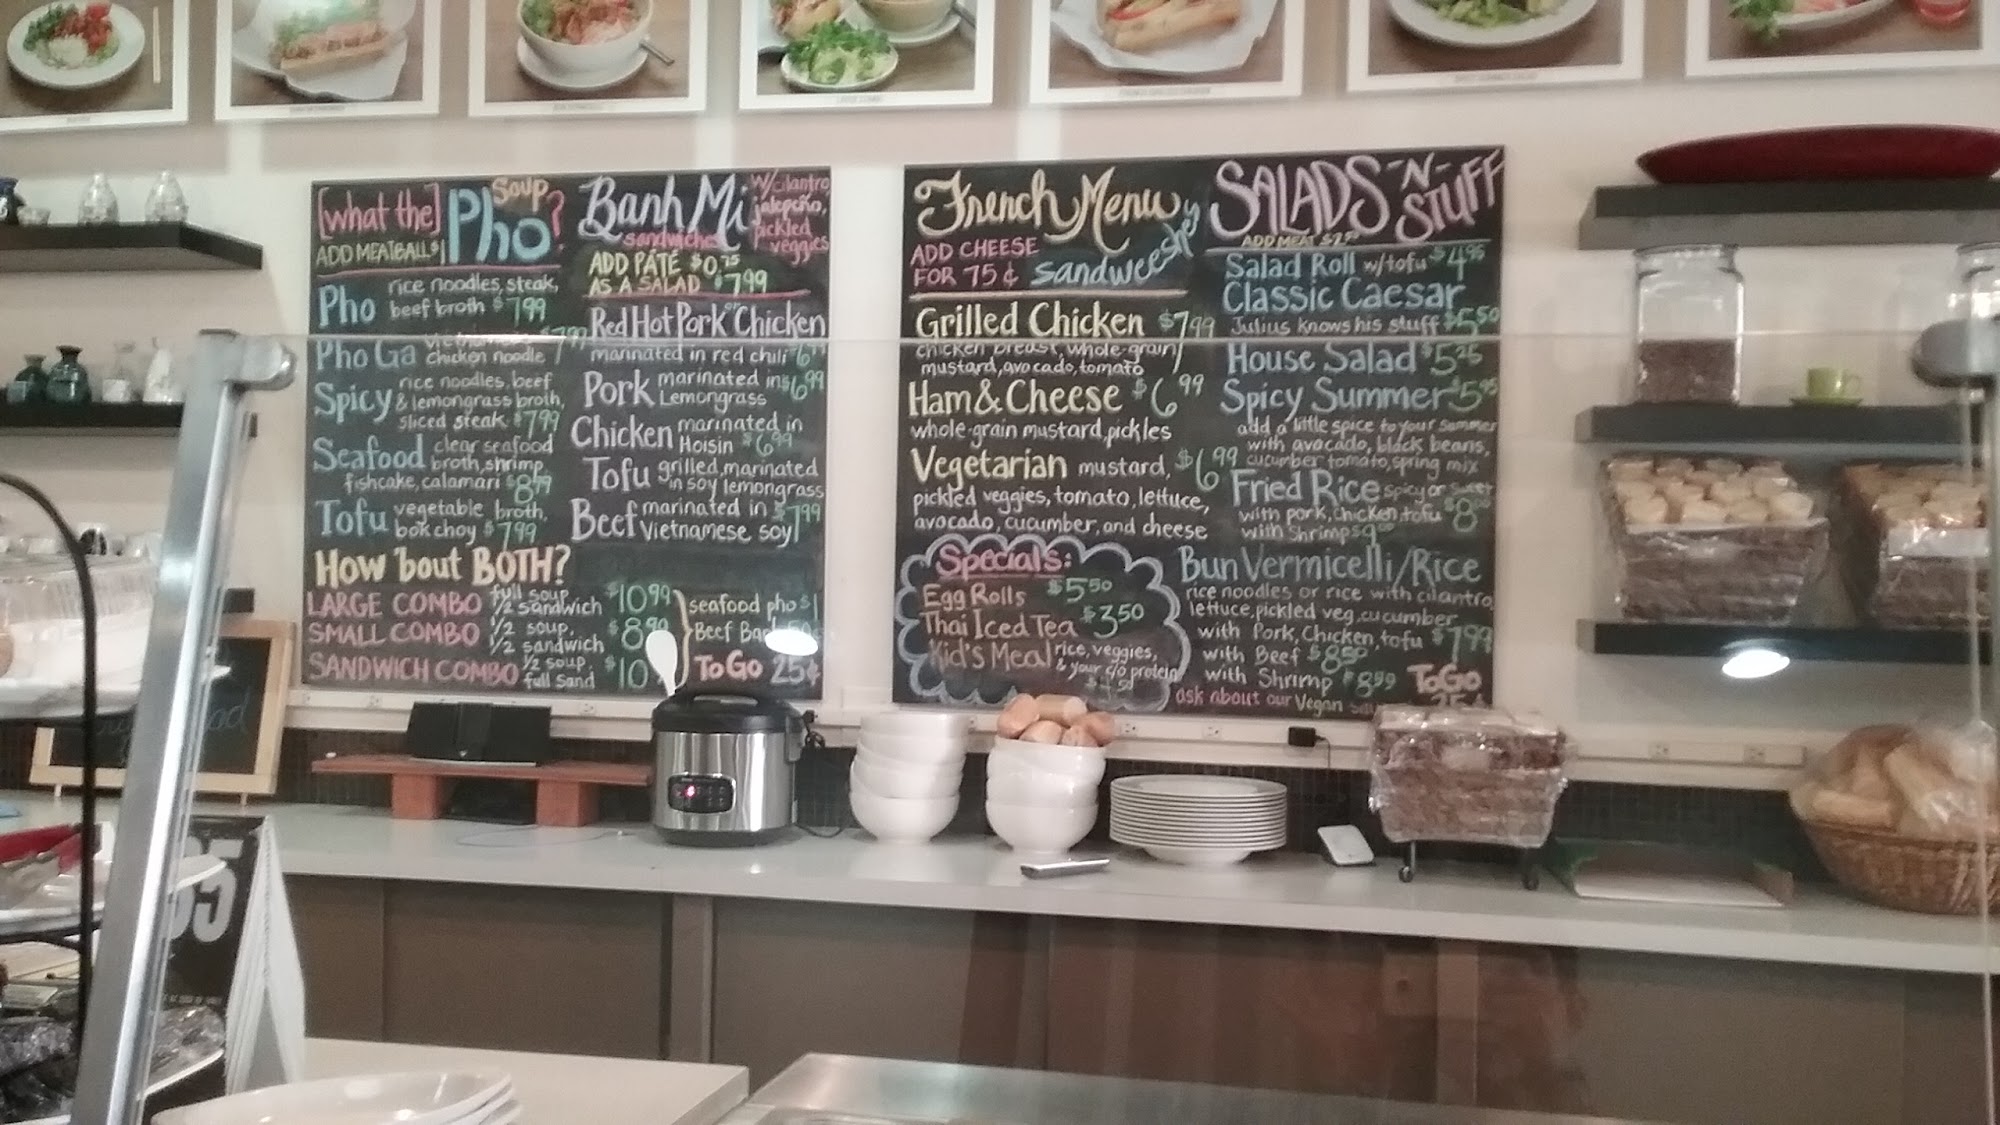 [what the] Pho Soup?
ADD MEATBALLS $1
Pho rice noodles, steak,
beef broth $7.99
Pho Ga $7.99
chicken noodle
Spicy rice noodles, beef
& lemongrass broth,
sliced steak $7.99
Seafood clear seafood
broth, shrimp,
fishcake, calamari $8.99
Tofu vegetable broth,
bok choy $7.99
How 'bout BOTH?
LARGE COMBO full soup, 1/2 sandwich $10.99
SMALL COMBO 1/2 soup, 1/2 sandwich
SANDWICH COMBO 1/2 soup, full sand $10
seafood pho $1
Beef
To Go 25¢
Banh Mi
sandwiches
w/cilantro,
jalepeño,
pickled
veggies
ADD PÂTÉ $0.75
AS A SALAD $7.99
Red Hot Pork or Chicken
marinated in red chili
Pork marinated in $6.99
Lemongrass
Chicken marinated in
Hoisin $6.99
Tofu grilled, marinated
in soy lemongrass
Beef marinated in $7.99
Vietnamese soy
French Menu
ADD CHEESE
FOR 75¢
sandweeshes
Grilled Chicken $7.99
chicken breast, whole-grain
mustard, avocado, tomato
Ham & Cheese $6.99
whole-grain mustard, pickles
Vegetarian mustard, $6.99
pickled veggies, tomato, lettuce,
avocado, cucumber, and cheese
Specials:
Egg Rolls $5.50
Thai Iced Tea $3.50
Kid's Meal rice, veggies,
& your c/o protein
SALADS -N- STUFF
ADD MEAT $2.50
Salad Roll w/tofu $4.95
Classic Caesar
Julius knows his stuff $5.50
House Salad $5.25
Spicy Summer $5.95
add a little spice to your summer
with avocado, black beans,
cucumber tomato, spring mix
Fried Rice spicy or sweet
with pork, chicken, tofu $8
with Shrimp $9
Bun Vermicelli/Rice
rice noodles or rice with cilantro,
lettuce, pickled veg, cucumber
with Pork, Chicken, tofu $7.99
with Beef $8.50
with Shrimp $8.99
To Go
25¢
ask about our Vegan